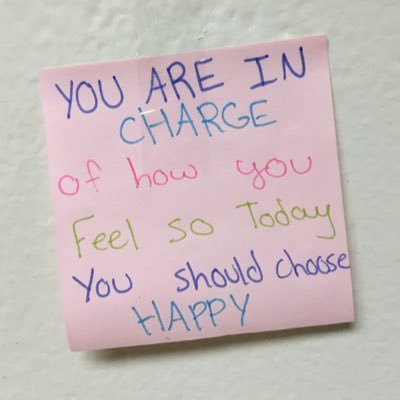 YOU ARE IN
CHARGE
of how you
Feel so Today
You should choose
HAPPY